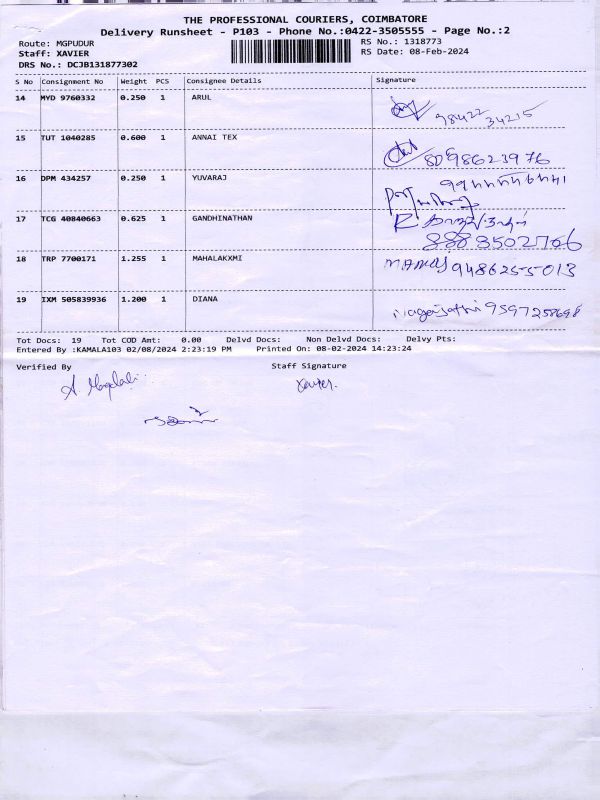 THE PROFESSIONAL COURIERS, COIMBATORE
Delivery Runsheet - P103 - Phone No.:0422-3505555 - Page No.:2
Route: MGPUDUR RS No.: 1318773
Staff: XAVIER RS Date: 08-Feb-2024
DRS No.: DCJB131877302
S No Consignment No Weight PCS Consignee Details Signature
14 MYD 9760332 0.250 1 ARUL
98422 34215
15 TUT 1040285 0.600 1 ANNAI TEX
98623976
16 DPM 434257 0.250 1 YUVARAJ
17 TCG 40840663 0.625 1 GANDHINATHAN
8883502766
18 TRP 7700171 1.255 1 MAHALAKXMI
9486255013
19 IXM 505839936 1.200 1 DIANA
9597258698
Tot Docs: 19 Tot COD Amt: 0.00 Delvd Docs: Non Delvd Docs: Delvy Pts:
Entered By :KAMALA103 02/08/2024 2:23:19 PM Printed On: 08-02-2024 14:23:24
Verified By Staff Signature
Xavier.